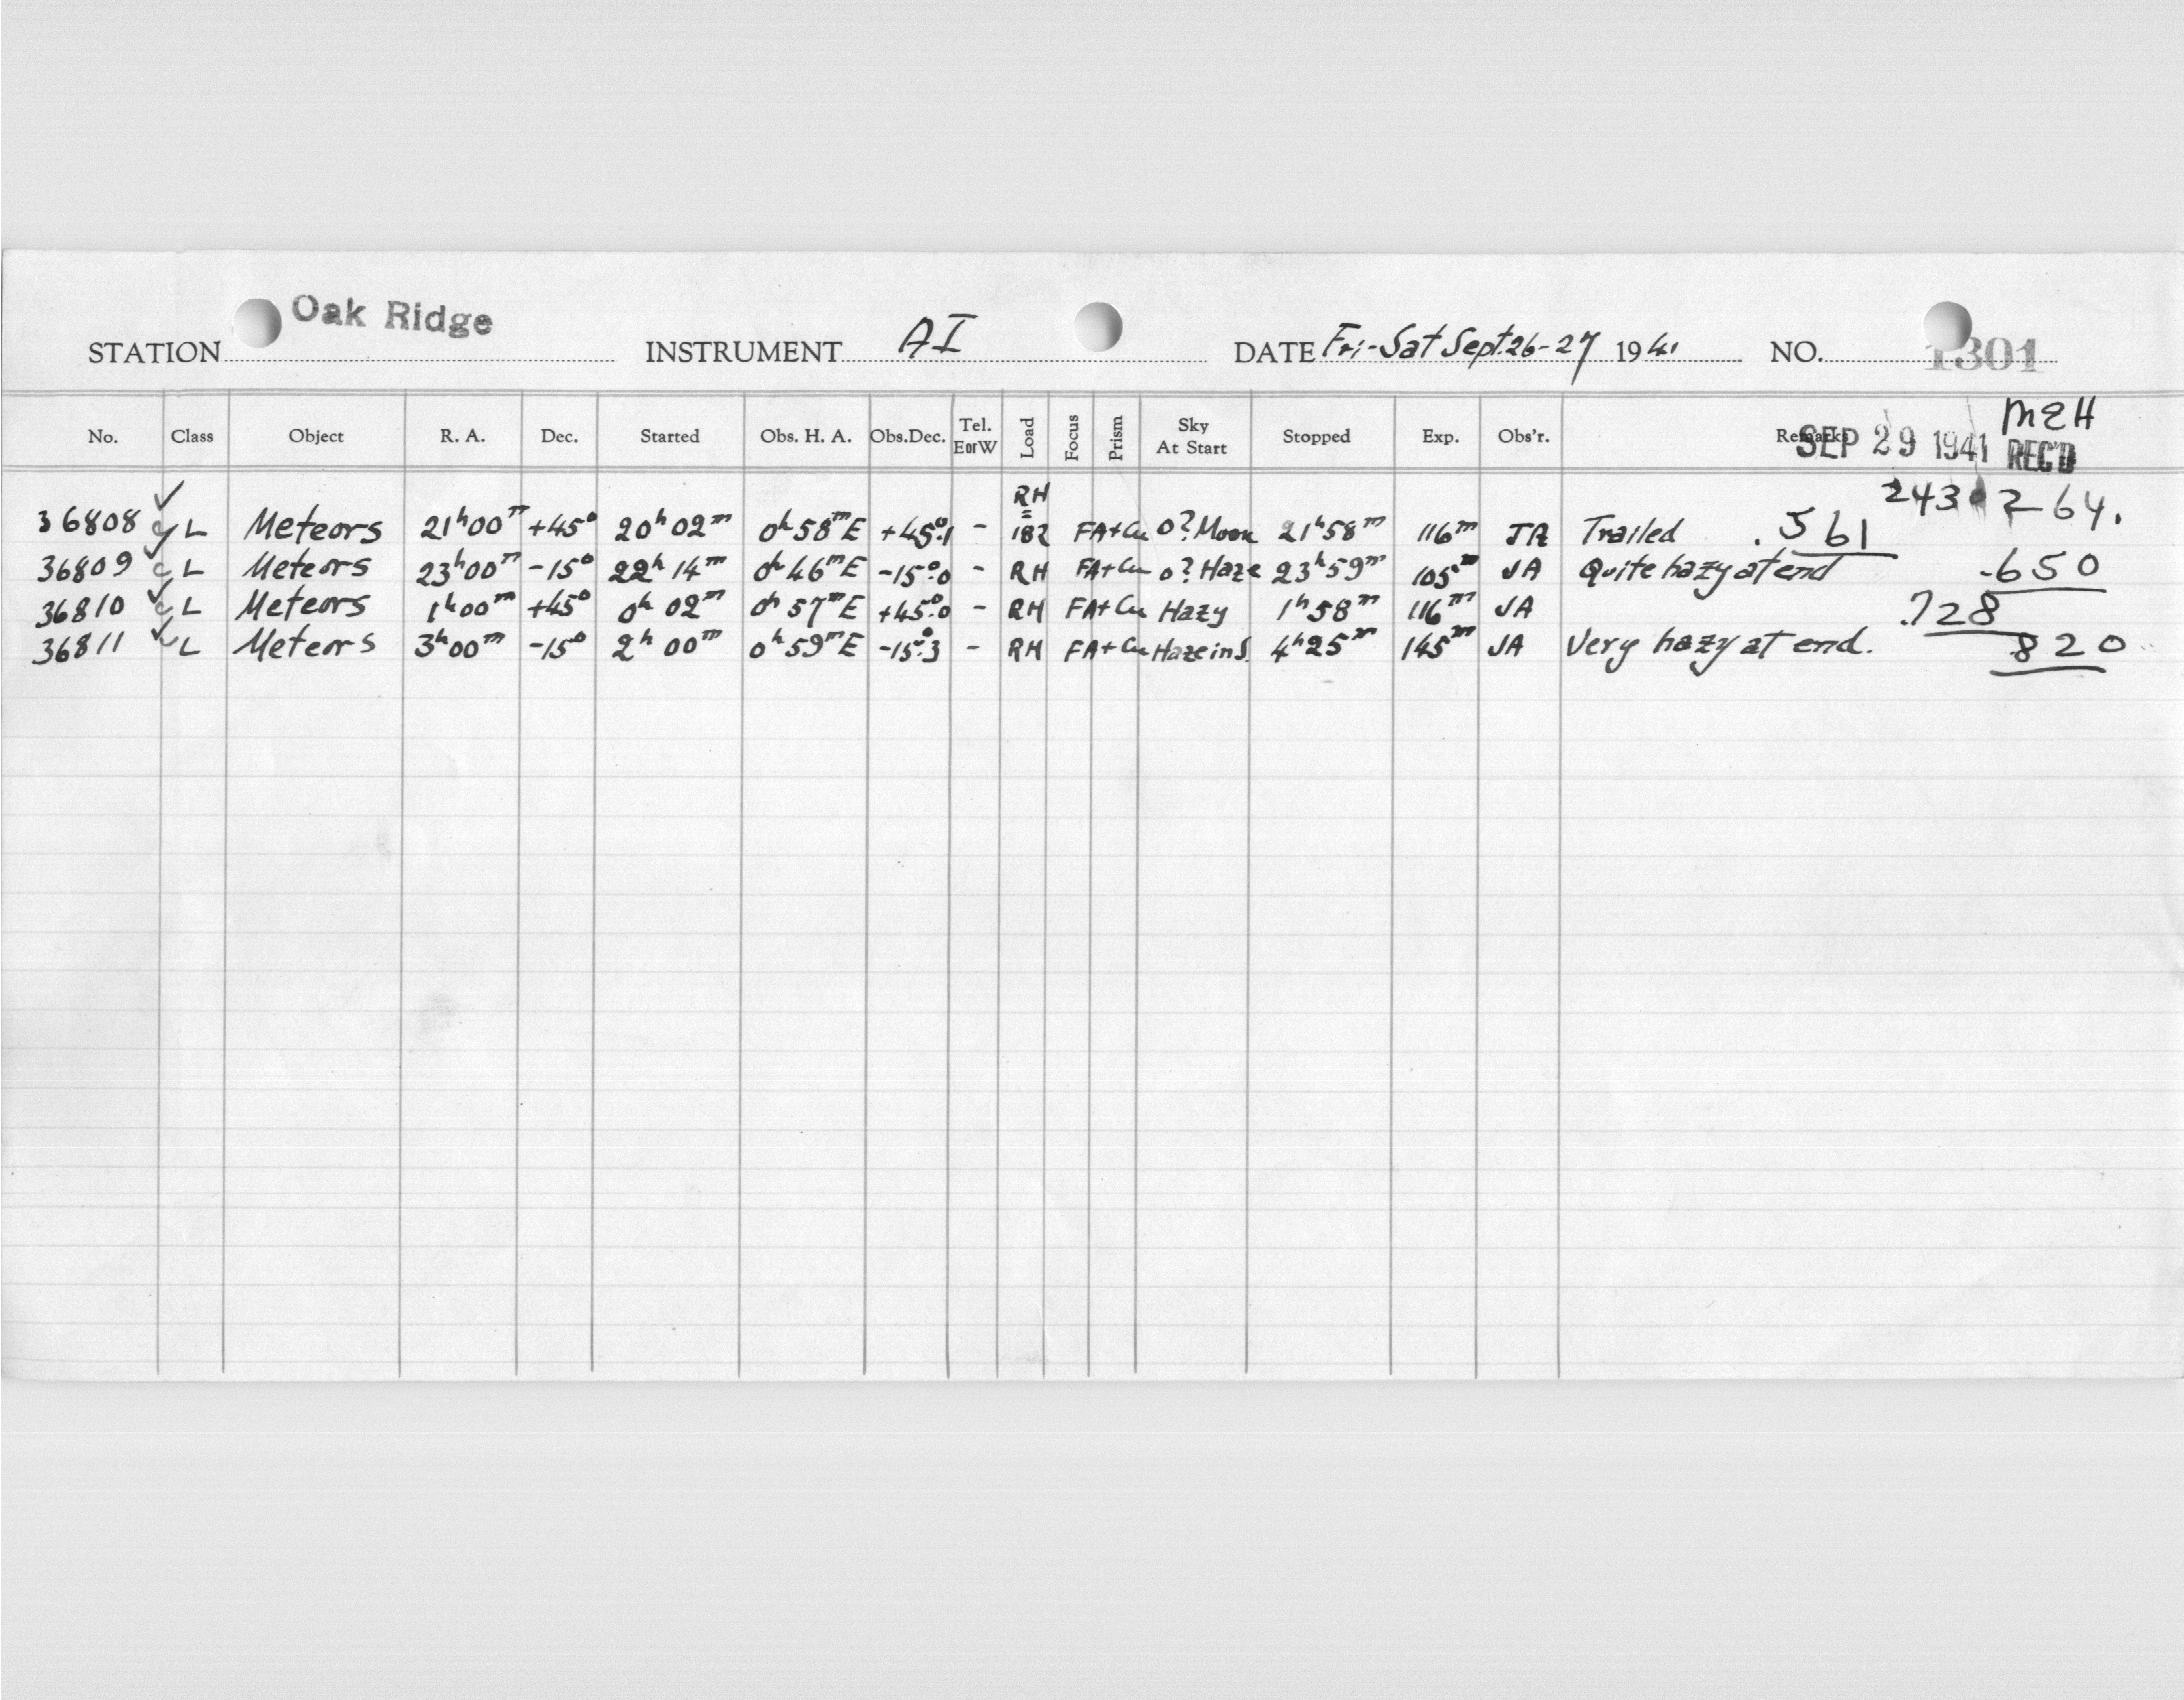 STATION Oak Ridge INSTRUMENT AI DATE Fri-Sat Sept. 26-27 1941 NO. 1301
No. Class Object R. A. Dec. Started Obs. H. A. Obs.Dec. Tel. E or W Load Focus Prism Sky At Start Stopped Exp. Obs'r. Remarks
SEP 29 1941 REC'D MEH
RH 2430264.
36808 c L Meteors 21ʰ00ᵐ +45° 20ʰ02ᵐ 0ʰ58ᵐE +45°.1 - 182 FA+Cu 0? Moon 21ʰ58ᵐ 116ᵐ JA Trailed .561
36809 c L Meteors 23ʰ00ᵐ -15° 22ʰ14ᵐ 0ʰ46ᵐE -15°.0 - RH FA+Cu 0? Haze 23ʰ59ᵐ 105ᵐ JA Quite hazy at end .650
36810 c L Meteors 1ʰ00ᵐ +45° 0ʰ02ᵐ 0ʰ57ᵐE +45°.0 - RH FA+Cu Hazy 1ʰ58ᵐ 116ᵐ JA .728
36811 L Meteors 3ʰ00ᵐ -15° 2ʰ00ᵐ 0ʰ59ᵐE -15°.3 - RH FA+Cu Haze in S. 4ʰ25ᵐ 145ᵐ JA Very hazy at end. 820